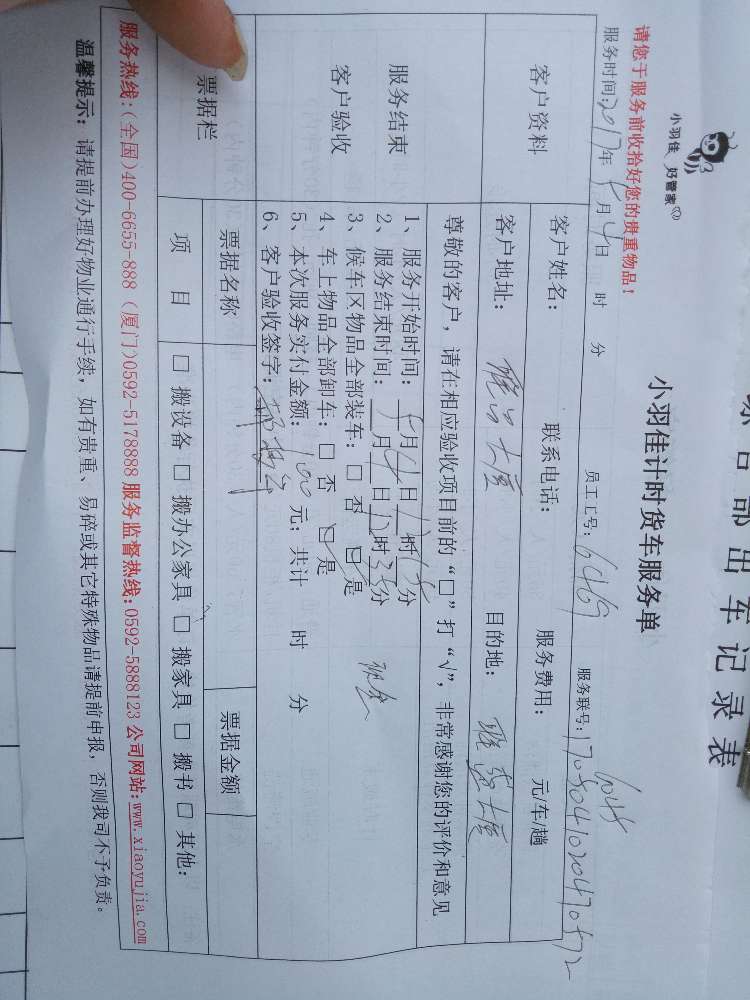 出车记录表
小羽佳 好管家
小羽佳计时货车服务单
请您于服务前收拾好您的贵重物品！
服务时间:2017年8月4日 时 分 员工工号: 6469 服务联号: 170804102047
6048
客户资料
客户姓名: 联系电话: 服务费用: 元/车/趟
客户地址: 大厦 目的地: 大厦
服务结束
客户验收
尊敬的客户，请在相应验收项目前的“□”打“√”，非常感谢您的评价和意见
1、服务开始时间: 月4日 时 分
2、服务结束时间: 月4日 时 分
3、候车区物品全部装车: □ 否 □ 是
现金
4、车上物品全部卸车: □ 否 □ 是
5、本次服务实付金额: 100元; 共计 时 分
6、客户验收签字:
票据栏
票据名称 票据金额
项 目 □ 搬设备 □ 搬办公家具 □ 搬家具 □ 搬书 □ 其他:
服务热线:(全国)400-6655-888 (厦门)0592-5178888 服务监督热线:0592-5888123 公司网站:www.xiaoyujia.com
温馨提示: 请提前办理好物业通行手续，如有贵重、易碎或其它特殊物品请提前申报，否则我司不予负责。